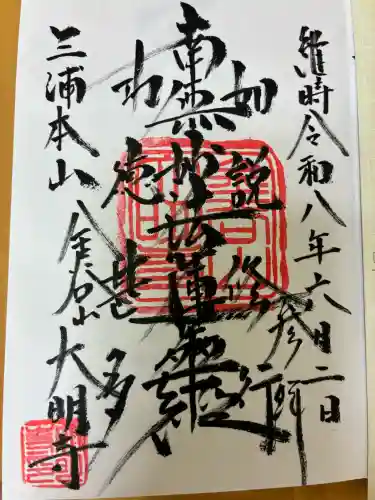 維時令和八年六月二日
参拝
如説修行
南無妙法蓮華経
功徳甚多
三浦本山
金谷山大明寺